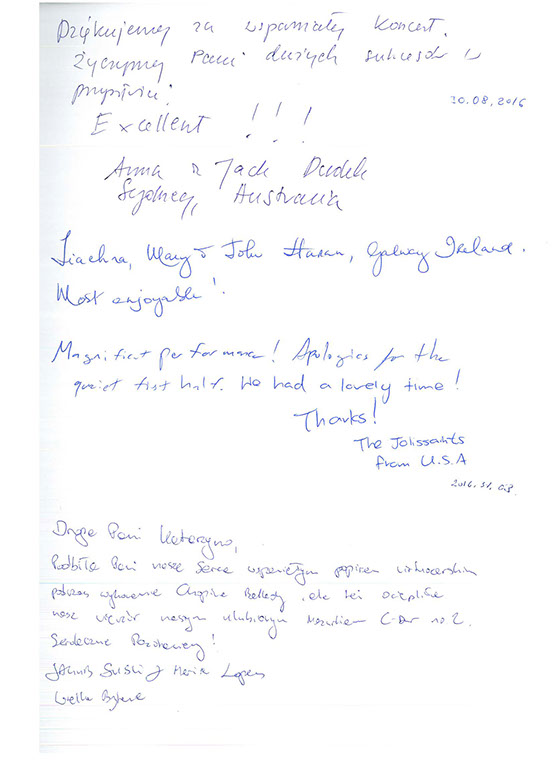 Dziękujemy za wspaniały koncert.
Życzymy Pani dużych sukcesów w
przyszłości!
30.08.2016
Excellent !!!
Anna & Jack Dudek
Sydney, Australia
Fiachra, Mary & John Hanan, Galway Ireland.
Most enjoyable!
Magnificent performance! Apologies for the
quiet first half. We had a lovely time!
Thanks!
The Jolissaints
from U.S.A
2016.31.08
Droga Pani Katarzyno,
Podbiła Pani nasze serca wspaniałym popisem wirtuozerskim
podczas wykonania Chopina Ballady, ale też ociepliła
nasz wieczór naszym ulubionym Mazurkiem C-Dur no 2.
Serdecznie Pozdrawiamy!
Janusz Suski & Maria Lopez
Wielka Brytania